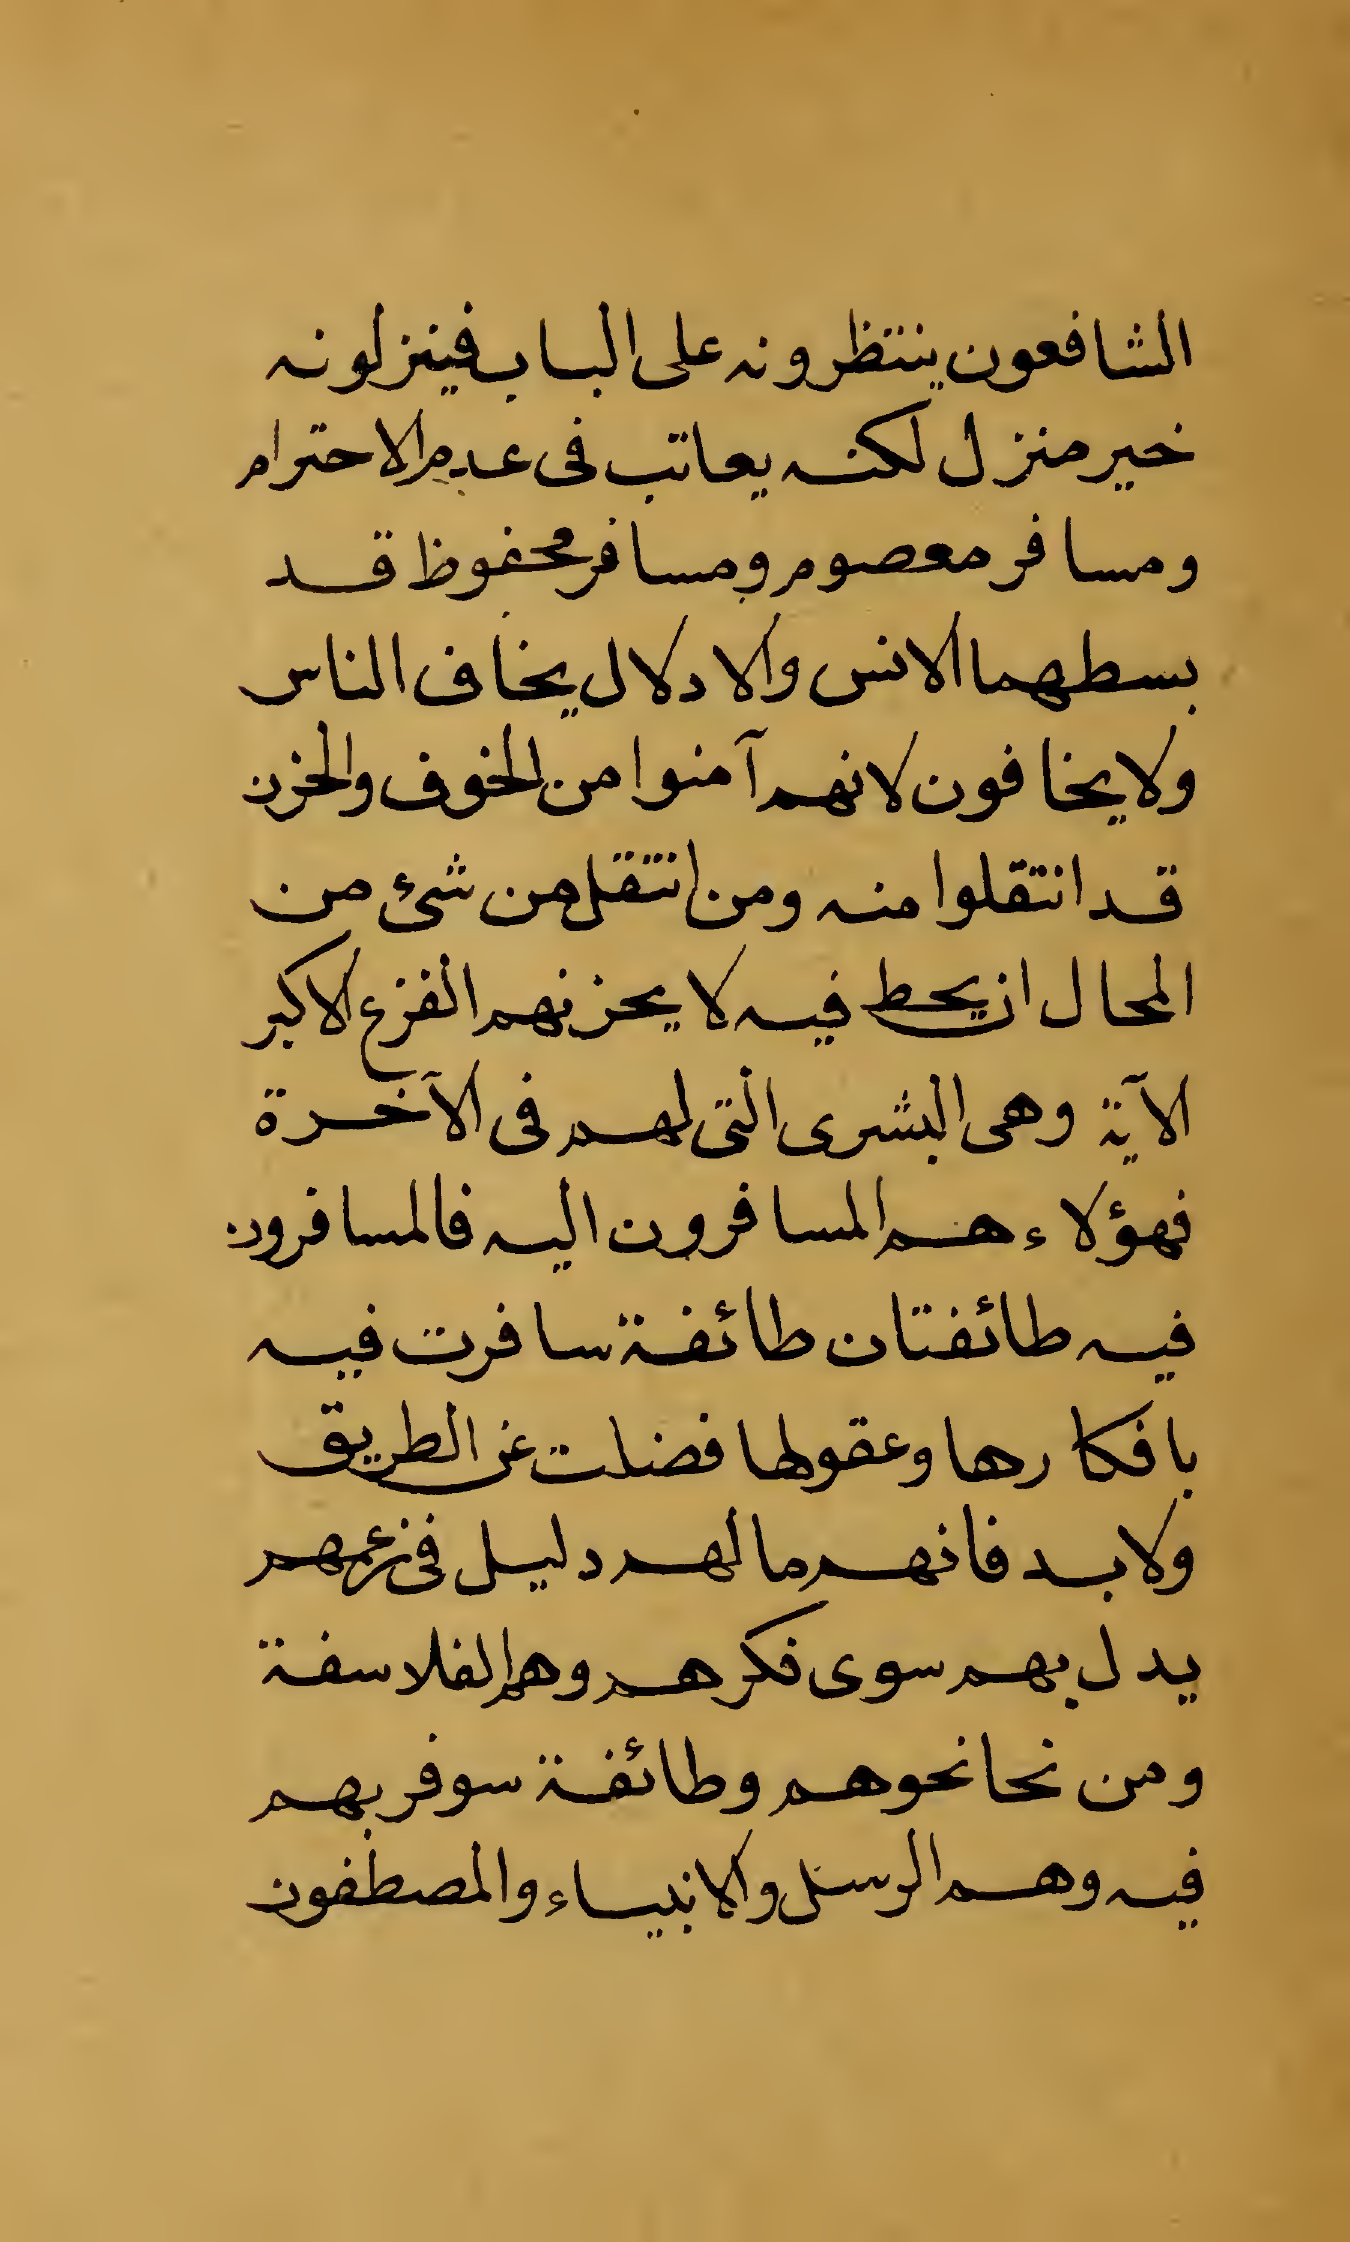 الشافعون ينتظرونه على الباب فينزلونه
خير منزل لكنه يعاتب فى عدم الاحترام
ومسافر معصوم ومسافر محفوظ قد
بسطهما الانس والادلال يخاف الناس
ولا يخافون لانهم آمنوا من الخوف والحزن
قد انتقلوا منه ومن انتقل من شئ من
المحال ان يحط فيه لا يحزنهم الفزع الاكبر
الآية وهى البشرى التى لهم فى الآخرة
فهؤلاء هم المسافرون اليه فالمسافرون
فيه طائفتان طائفة سافرت فيه
بافكارها وعقولها فضلت عن الطريق
ولابد فانهم مالهم دليل فى زعمهم
يدل بهم سوى فكرهم وهم الفلاسفة
ومن نحا نحوهم وطائفة سوفر بهم
فيه وهم الرسل والانبياء والمصطفون